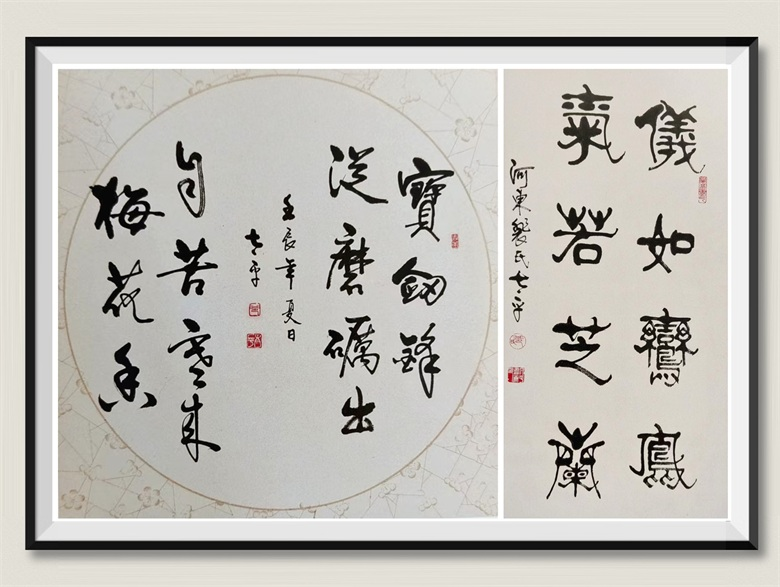 寶劍鋒
從磨礪出
梅花香
自苦寒來
壬辰年夏日
太平
儀如鸞鳳
氣若芝蘭
河東裴氏太平